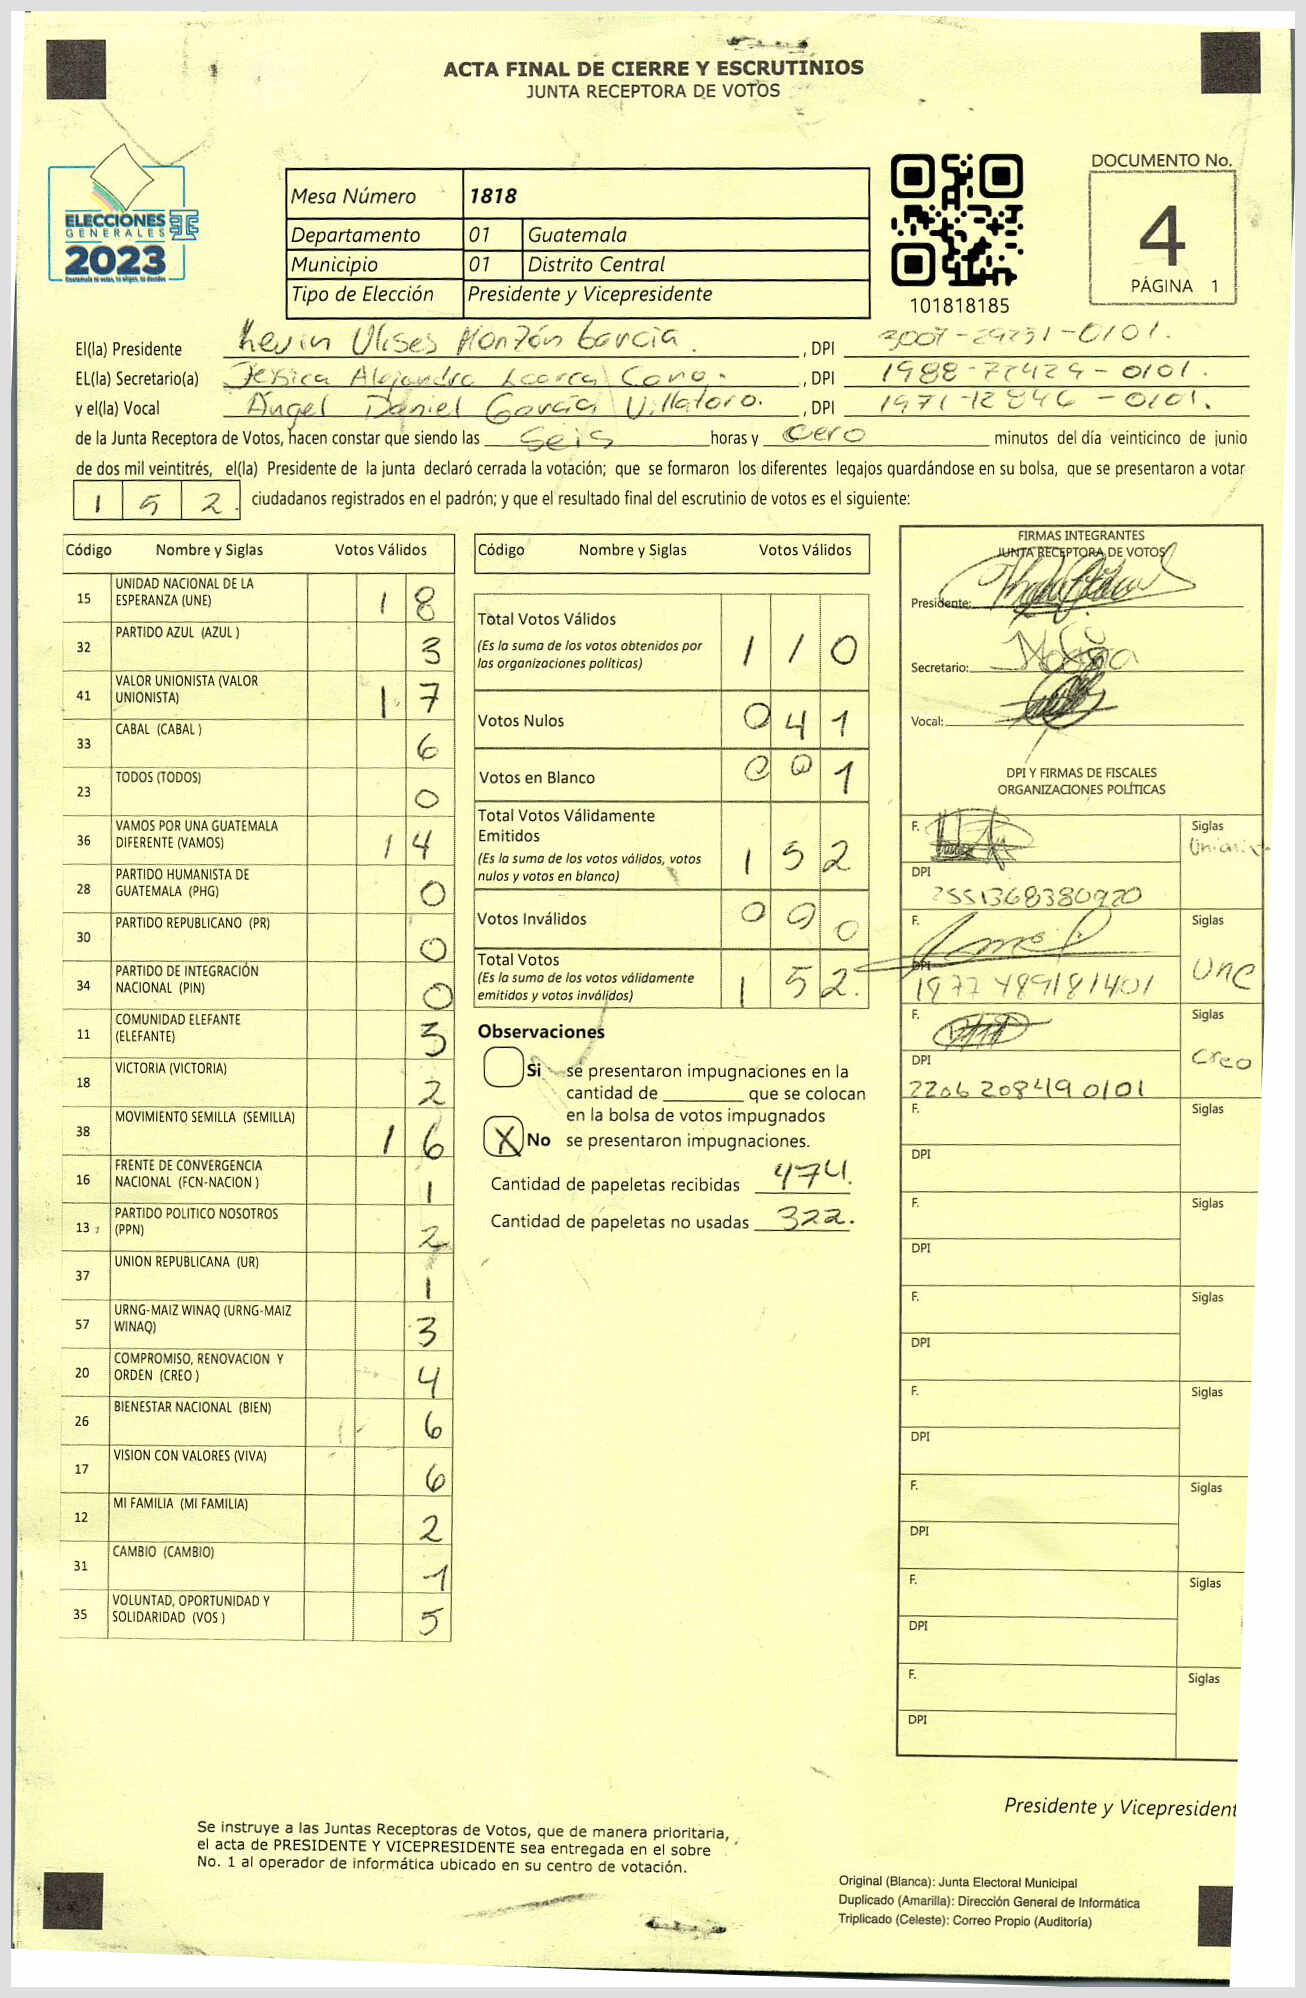 ACTA FINAL DE CIERRE Y ESCRUTINIOS
JUNTA RECEPTORA DE VOTOS
ELECCIONES
GENERALES
2023
Guatemala tú votas, tú eliges, tú decides
Mesa Número 1818
Departamento 01 Guatemala
Municipio 01 Distrito Central
Tipo de Elección Presidente y Vicepresidente
101818185
DOCUMENTO No.
4
PÁGINA 1
El(la) Presidente Kevin Ulises Monzón García. , DPI 3007-29231-0101.
EL(la) Secretario(a) Jessica Alejandra Cano. , DPI 1988-72429-0101.
y el(la) Vocal Ángel Daniel García Villatoro. , DPI 1971-12846-0101.
de la Junta Receptora de Votos, hacen constar que siendo las seis horas y cero minutos del día veinticinco de junio
de dos mil veintitrés, el(la) Presidente de la junta declaró cerrada la votación; que se formaron los diferentes legajos guardándose en su bolsa, que se presentaron a votar
1 5 2. ciudadanos registrados en el padrón; y que el resultado final del escrutinio de votos es el siguiente:
Código Nombre y Siglas Votos Válidos
15 UNIDAD NACIONAL DE LA ESPERANZA (UNE) 1 8
32 PARTIDO AZUL (AZUL ) 3
41 VALOR UNIONISTA (VALOR UNIONISTA) 1 7
33 CABAL (CABAL ) 6
23 TODOS (TODOS) 0
36 VAMOS POR UNA GUATEMALA DIFERENTE (VAMOS) 1 4
28 PARTIDO HUMANISTA DE GUATEMALA (PHG) 0
30 PARTIDO REPUBLICANO (PR) 0
34 PARTIDO DE INTEGRACIÓN NACIONAL (PIN) 0
11 COMUNIDAD ELEFANTE (ELEFANTE) 3
18 VICTORIA (VICTORIA) 2
38 MOVIMIENTO SEMILLA (SEMILLA) 1 6
16 FRENTE DE CONVERGENCIA NACIONAL (FCN-NACION ) 1
13 PARTIDO POLITICO NOSOTROS (PPN) 2
37 UNION REPUBLICANA (UR) 1
57 URNG-MAIZ WINAQ (URNG-MAIZ WINAQ) 3
20 COMPROMISO, RENOVACION Y ORDEN (CREO ) 4
26 BIENESTAR NACIONAL (BIEN) 6
17 VISION CON VALORES (VIVA) 6
12 MI FAMILIA (MI FAMILIA) 2
31 CAMBIO (CAMBIO) 1
35 VOLUNTAD, OPORTUNIDAD Y SOLIDARIDAD (VOS ) 5
Código Nombre y Siglas Votos Válidos
Total Votos Válidos 1 1 0
(Es la suma de los votos obtenidos por
las organizaciones políticas)
Votos Nulos 0 4 1
Votos en Blanco 0 0 1
Total Votos Válidamente
Emitidos 1 5 2
(Es la suma de los votos válidos, votos
nulos y votos en blanco)
Votos Inválidos 0 0 0
Total Votos 1 5 2.
(Es la suma de los votos válidamente
emitidos y votos inválidos)
Observaciones
Si se presentaron impugnaciones en la
cantidad de ________ que se colocan
en la bolsa de votos impugnados
X No se presentaron impugnaciones.
Cantidad de papeletas recibidas 474.
Cantidad de papeletas no usadas 322.
FIRMAS INTEGRANTES
JUNTA RECEPTORA DE VOTOS
Presidente:
Secretario:
Vocal:
DPI Y FIRMAS DE FISCALES
ORGANIZACIONES POLÍTICAS
F. Siglas
DPI 2551368380920
F. Siglas UNE
DPI 1977489181401
F. Siglas Creo
DPI 2206208490101
F. Siglas
DPI
F. Siglas
DPI
F. Siglas
DPI
F. Siglas
DPI
F. Siglas
DPI
F. Siglas
DPI
F. Siglas
DPI
Presidente y Vicepresident
Se instruye a las Juntas Receptoras de Votos, que de manera prioritaria,
el acta de PRESIDENTE Y VICEPRESIDENTE sea entregada en el sobre
No. 1 al operador de informática ubicado en su centro de votación.
Original (Blanca): Junta Electoral Municipal
Duplicado (Amarilla): Dirección General de Informática
Triplicado (Celeste): Correo Propio (Auditoría)